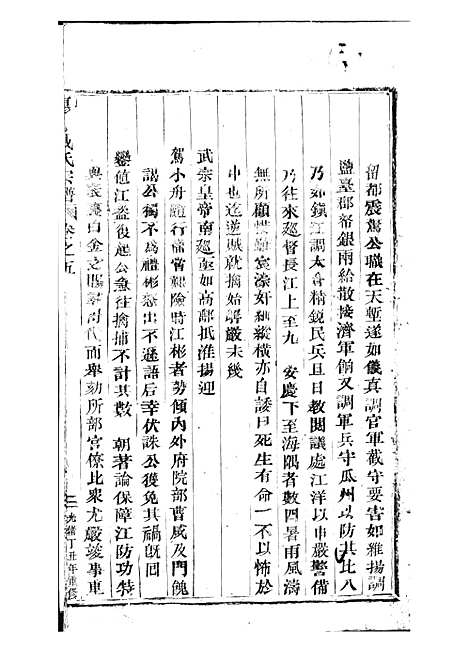 留都震驚公職在天塹遂如儀真調官軍截守要害如維揚調
鹽臺郡帑銀兩給散接濟軍餉又調軍兵守瓜州以防其北八
乃如鎮江調太倉精銳民兵且日教閱議處江洋以申嚴警備
乃往來廵督長江上至九 安慶下至海隅者數四暑雨風濤
無所顧 奸 縱橫亦自諉曰死生有命一不以怖於
中也迄逆賊就擒始解嚴未幾
武宗皇帝南廵公如高郵抵淮揚迎
駕小舟隨行備 艱險時江彬者勢傾內外府院部曹咸及門 
謁公獨不為禮彬 出不遜語后幸伏誅公獲免其禍旣回
鑾値江盜復起公急往擒捕不計其數 朝著論保障江防功特
與 白金之賜 時代 而舉劾所部官僚比衆尤嚴竣事車
氏宗譜 卷之五
光緒丁丑年重修